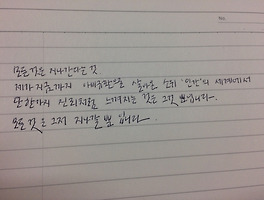 모든것은 지나간다는 것
제가 지금까지 아비규환으로 살아온 소위 '인간'의 세계에서
단 한가지 진리처럼 느껴지는 것은 그것 뿐입니다.
모든 것은 그저 지나갈 뿐 입니다.